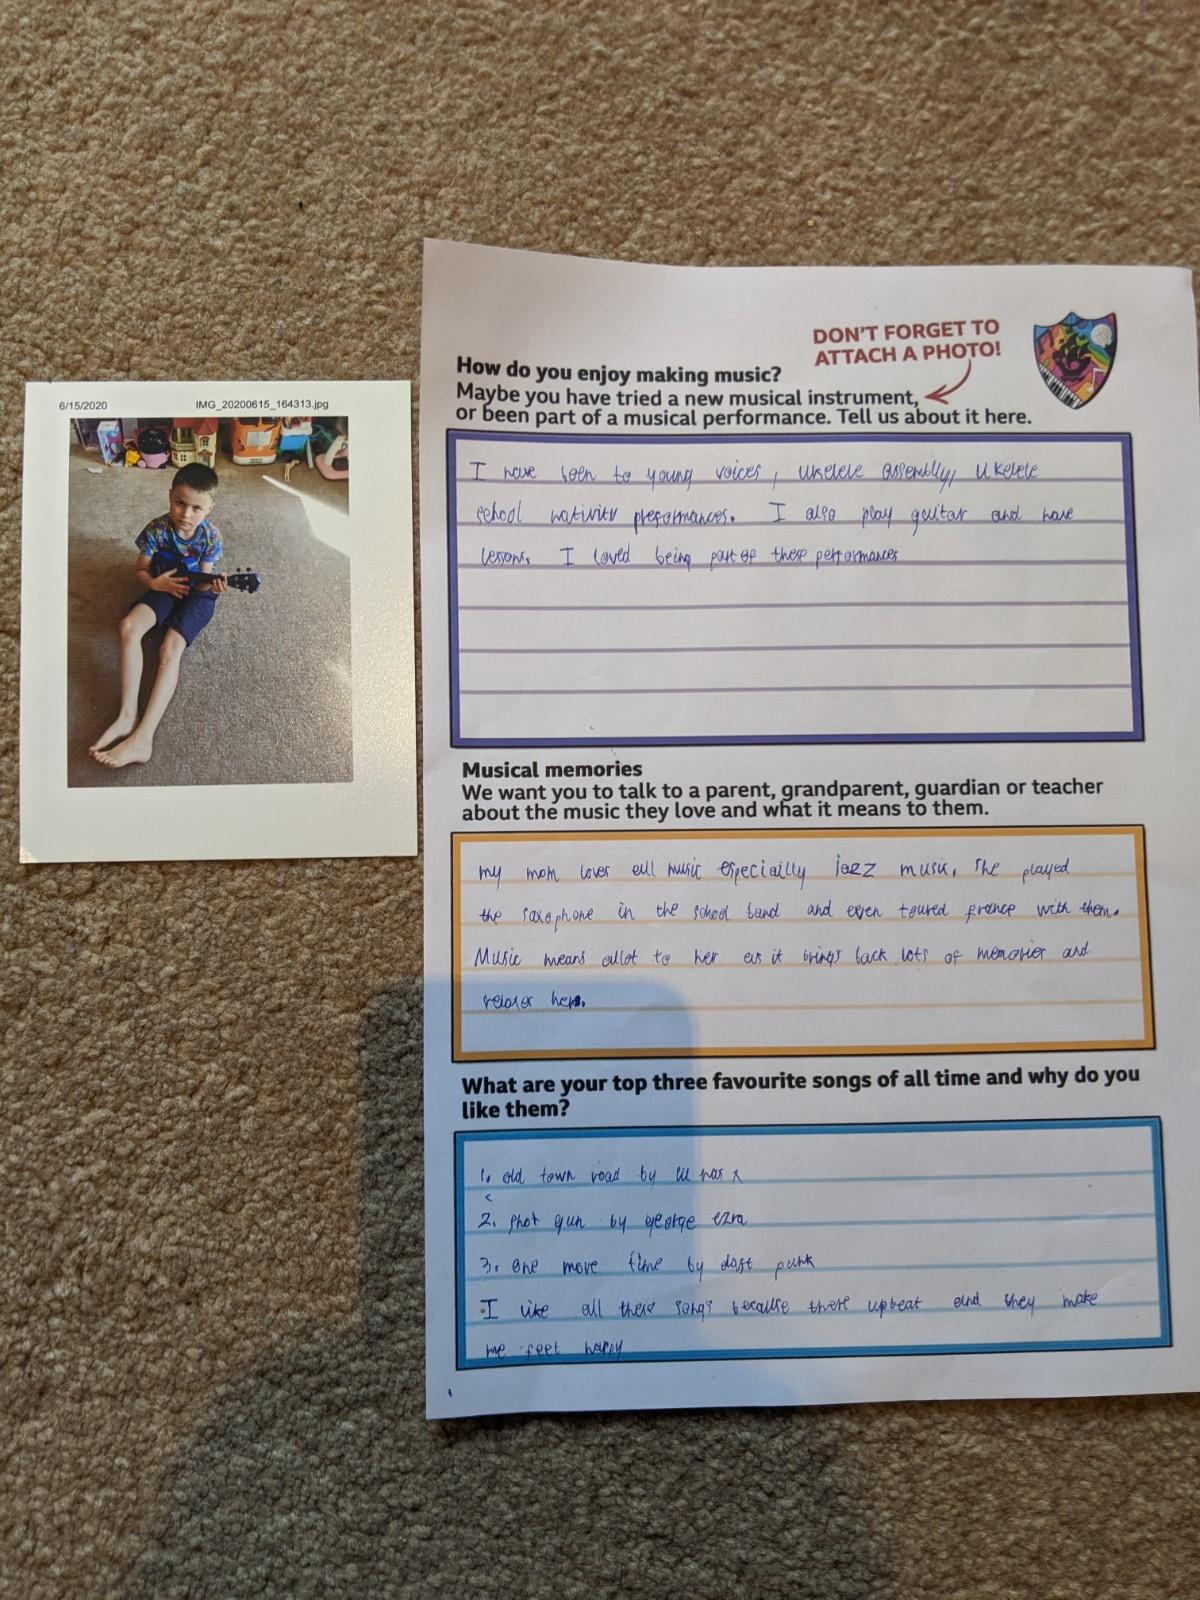 6/15/2020 IMG_20200615_164313.jpg
DON'T FORGET TO
ATTACH A PHOTO!
How do you enjoy making music?
Maybe you have tried a new musical instrument,
or been part of a musical performance. Tell us about it here.
I have been to young voices, ukelele assembly, ukelele
school nativity preformances. I also play guitar and have
lessons. I loved being part of these performances
Musical memories
We want you to talk to a parent, grandparent, guardian or teacher
about the music they love and what it means to them.
my mom loves all music especially jazz music. She played
the saxophone in the school band and even toured france with them.
Music means allot to her as it brings back lots of memories and
relaxes her.
What are your top three favourite songs of all time and why do you
like them?
1. old town road by lil nas x
2. shot gun by george ezra
3. one more time by daft punk
I like all these songs because there upbeat and they make
me feel happy